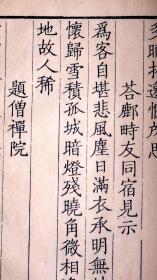 荅鄜畤友同宿見示
爲客自堪悲風塵日滿衣承明無
懷歸雪積孤城暗燈殘曉角微相
地故人稀
題僧禪院